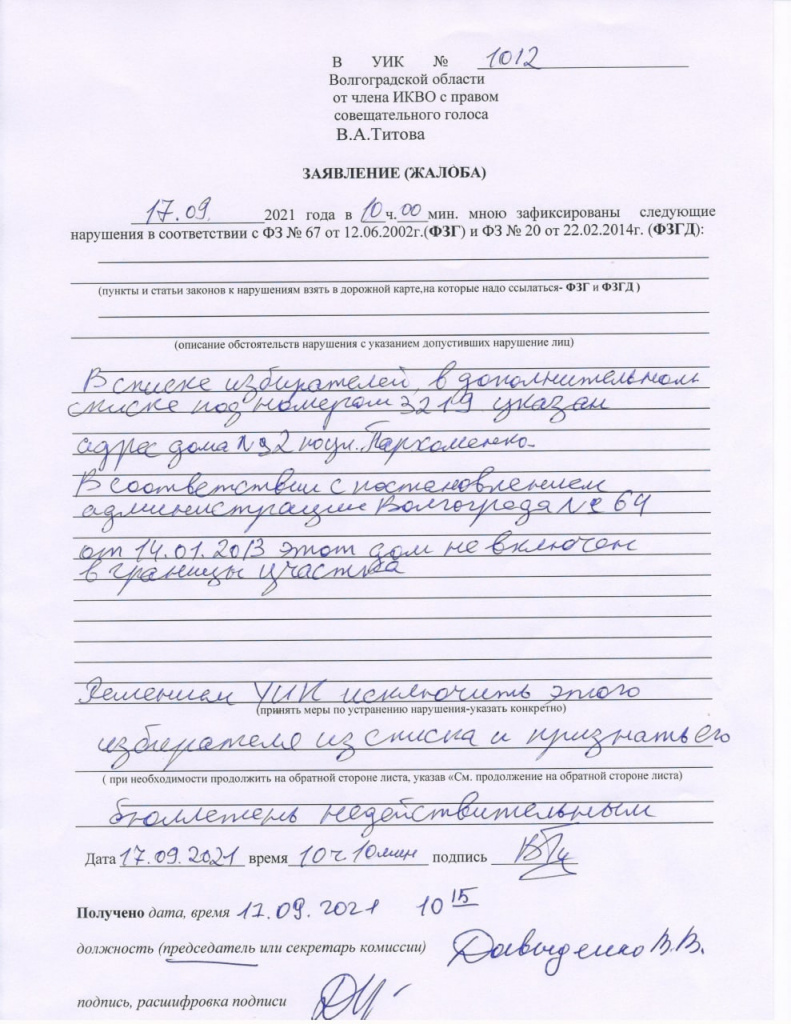 В УИК № 1012
Волгоградской области
от члена ИКВО с правом
совещательного голоса
В.А.Титова
ЗАЯВЛЕНИЕ (ЖАЛОБА)
17.09. 2021 года в 10 ч. 00 мин. мною зафиксированы следующие
нарушения в соответствии с ФЗ № 67 от 12.06.2002г.(ФЗГ) и ФЗ № 20 от 22.02.2014г. (ФЗГД):
(пункты и статьи законов к нарушениям взять в дорожной карте,на которые надо ссылаться- ФЗГ и ФЗГД )
(описание обстоятельств нарушения с указанием допустивших нарушение лиц)
В списке избирателей, в дополнительном
списке под номером 3219 указан
адрес дома № 32 по ул. Пархоменко.
В соответствии с постановлением
администрации Волгограда № 64
от 14.01.2013 этот дом не включен
в границы участка
Решением УИК исключить этого
(принять меры по устранению нарушения-указать конкретно)
избирателя из списка и признать его
( при необходимости продолжить на обратной стороне листа, указав «См. продолжение на обратной стороне листа)
бюллетень недействительным
Дата 17.09.2021 время 10 ч 10 мин подпись
Получено дата, время 17.09.2021 10 15
должность (председатель или секретарь комиссии) Давыденко В.В.
подпись, расшифровка подписи